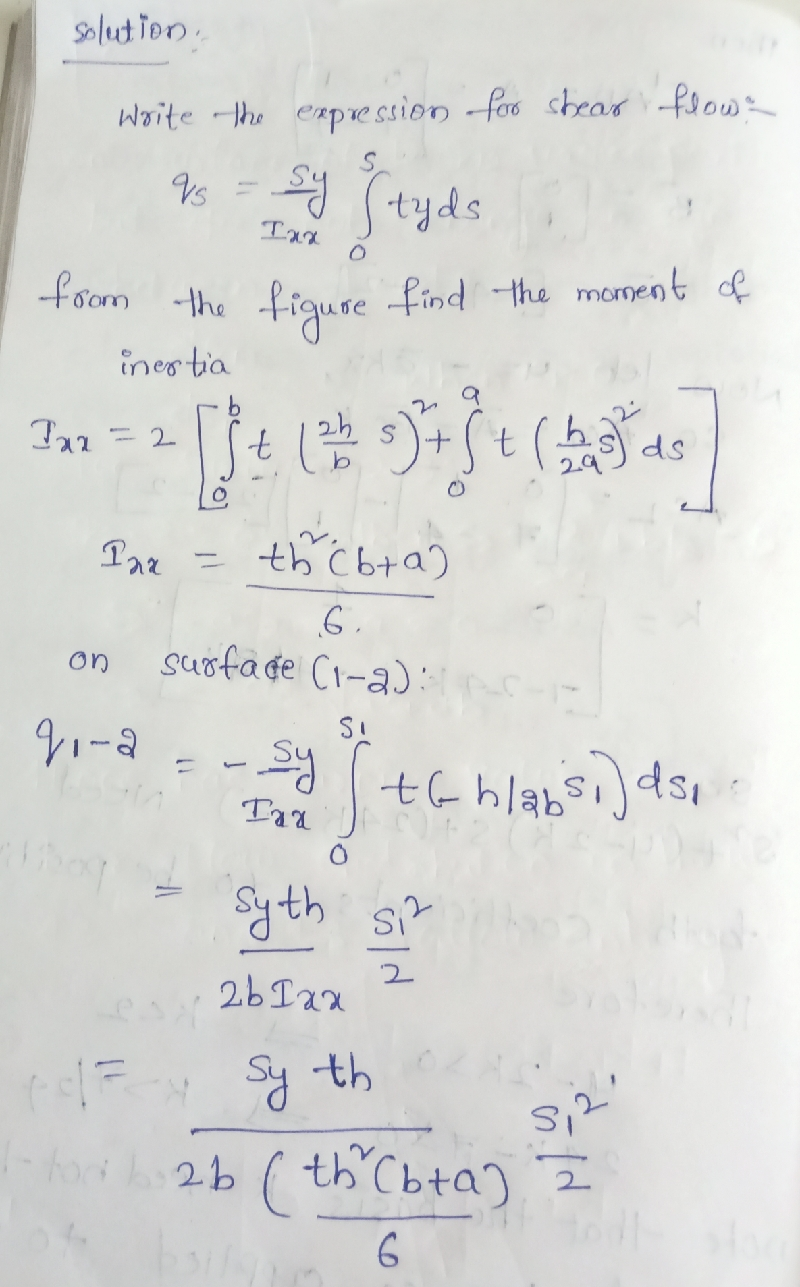 solution:
Write the expression for shear flow:-
qs = Sy/Ixx ∫₀ˢ tyds
from the figure find the moment of
inertia
Ixx = 2 [∫₀ᵇ t (2h/b s)² + ∫₀ᵃ t (h/2a s)² ds]
Ixx = th²(b+a)/6.
on surface (1-2):
q1-2 = - Sy/Ixx ∫₀^S1 t(-h/2b s1) ds1
= Sy th/2b Ixx S1²/2
= Sy th/2b (th²(b+a)/6 S1²/2